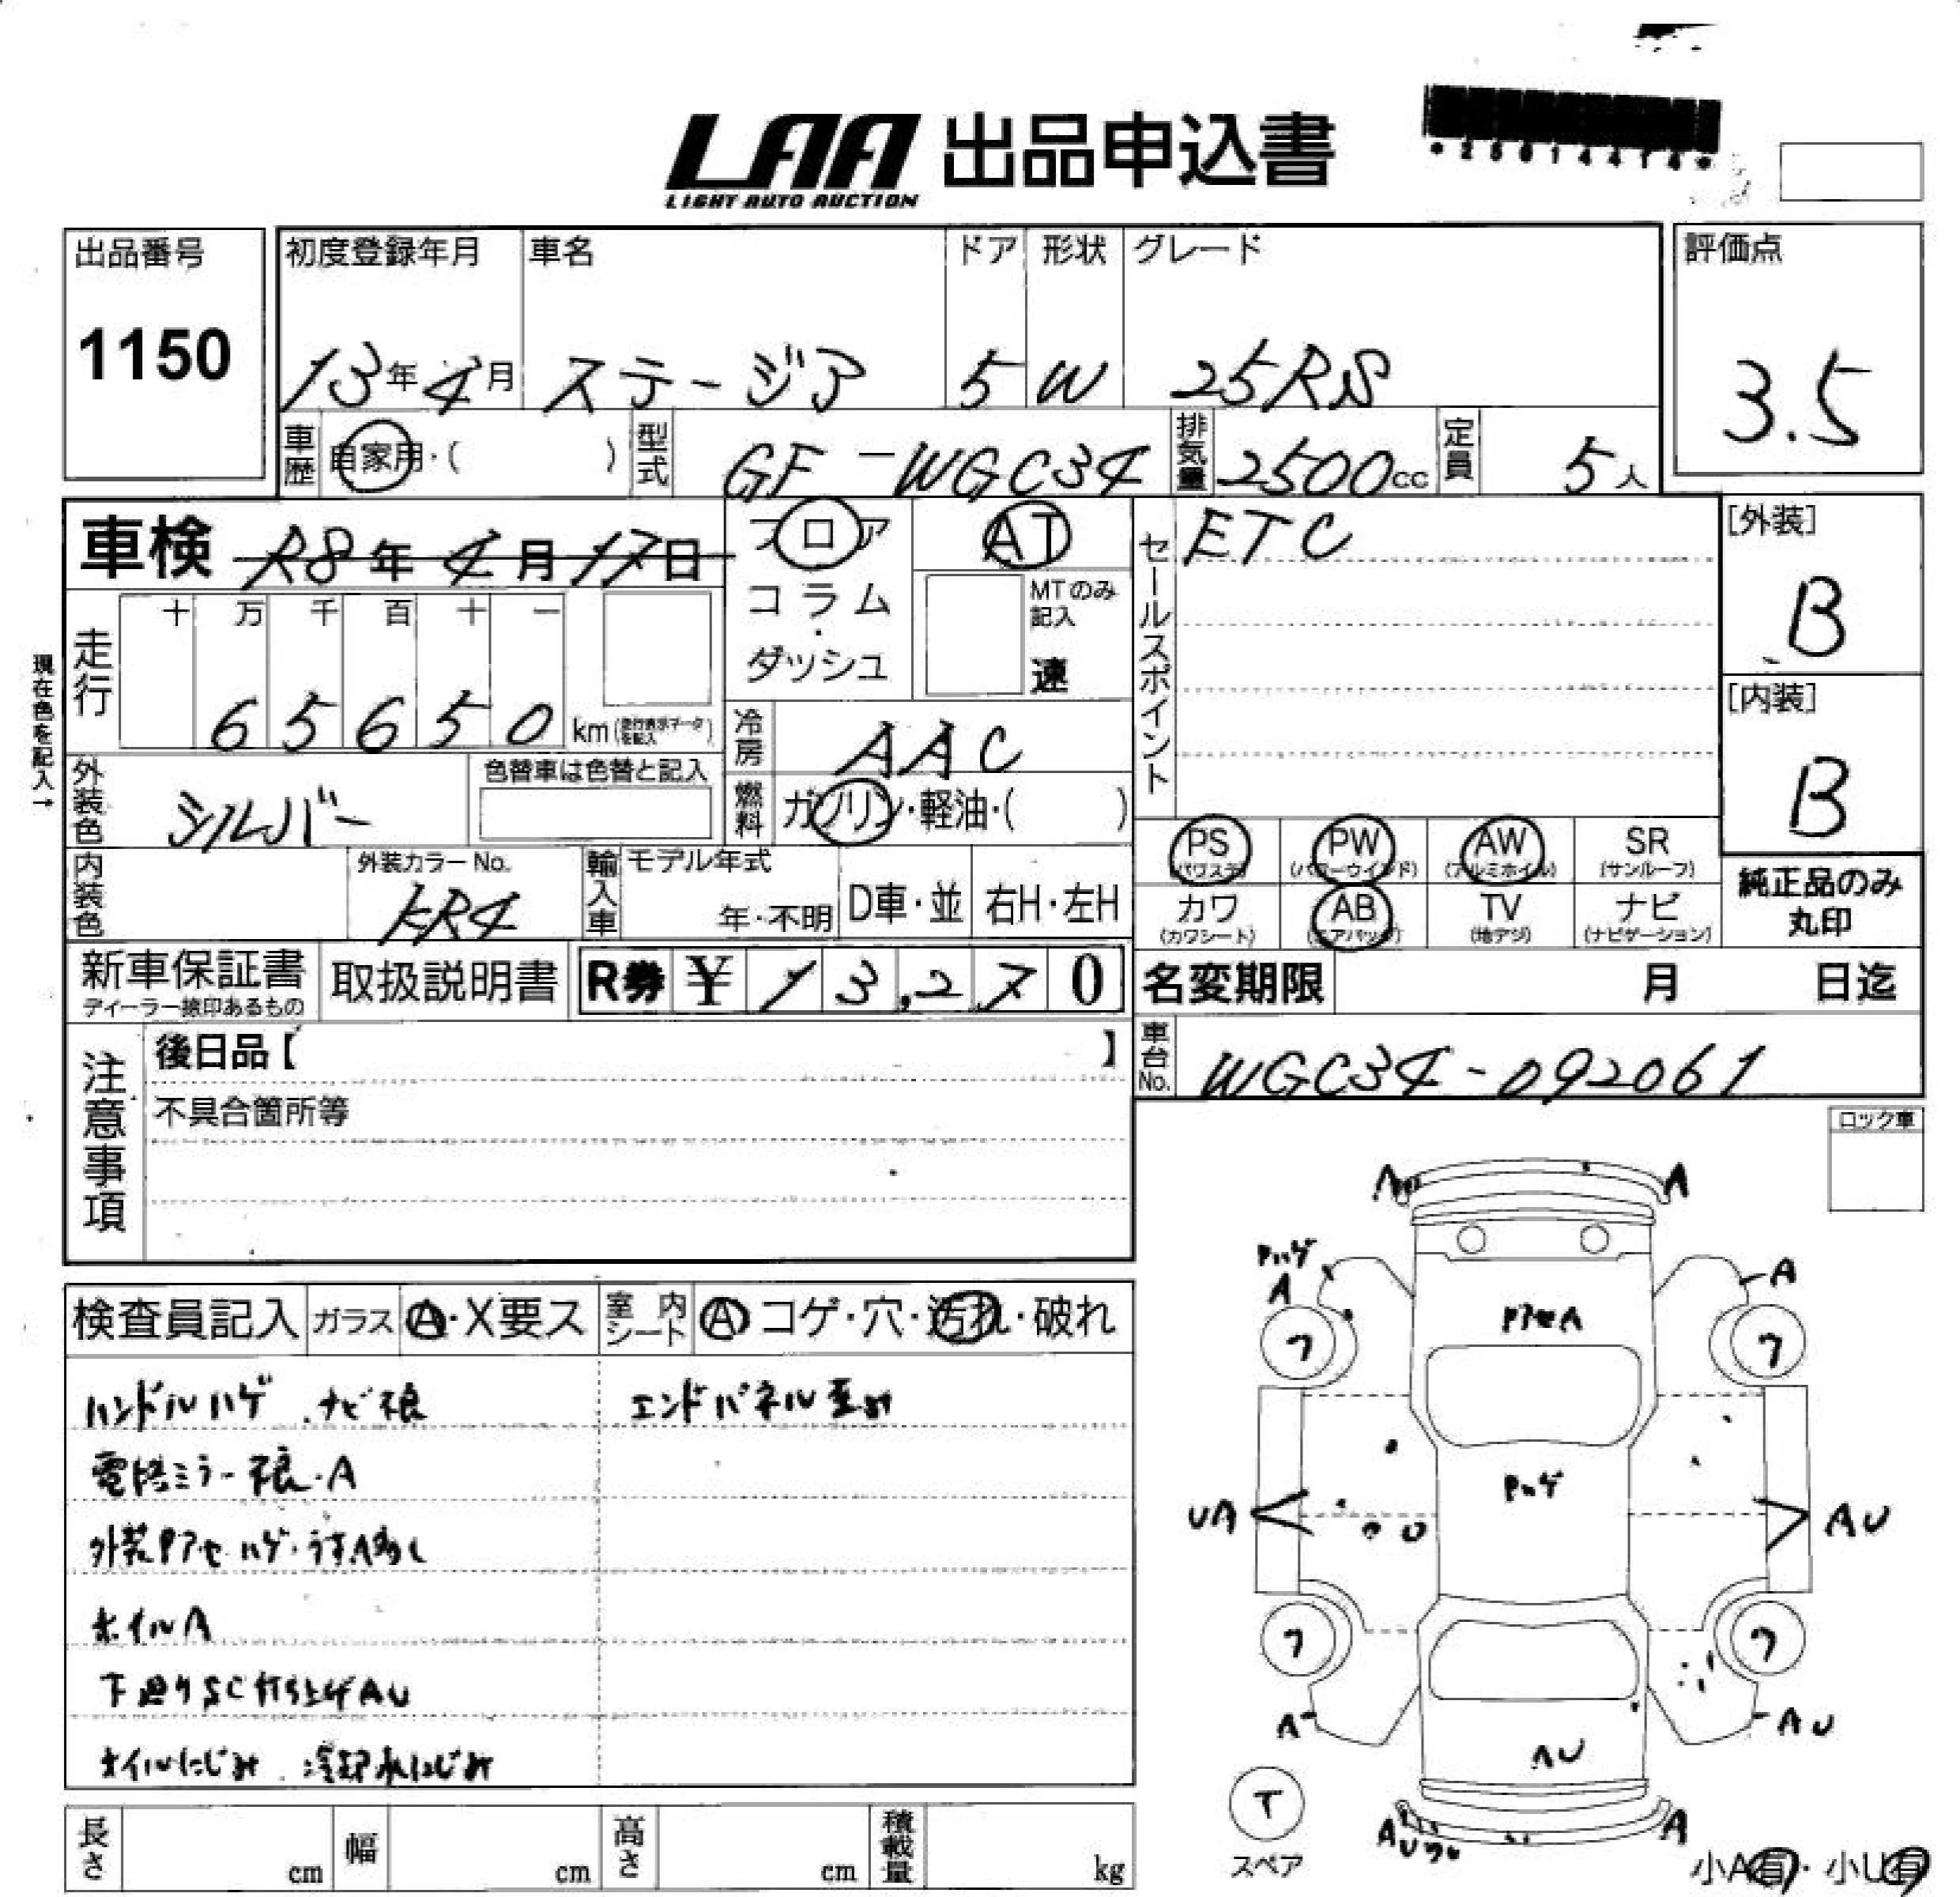 LAA 出品申込書
LIGHT AUTO AUCTION
出品番号
1150
初度登録年月 車名 ドア 形状 グレード
13年4月 ステージア 5 W 25RS
評価点
3.5
車歴 自家用・( ) 型式 GF-WGC34 排気量 2500cc 定員 5人
車検 R8年4月17日
フロア
コラム
・
ダッシュ
AT
MTのみ
記入
速
セールスポイント
ETC
[外装]
B
[内装]
B
現在色を記入→
走行 十 万 千 百 十 一
65650 km
冷房 AAC
外装色 シルバー
色替車は色替と記入
燃料 ガソリン・軽油・( )
内装色
外装カラーNo.
KR4
輸入車 モデル年式
年・不明 D車・並 右H・左H
PS PW AW SR
(パワステ) (パワーウインド) (アルミホイル) (サンルーフ)
カワ AB TV ナビ
(カワシート) (エアバッグ) (地デジ) (ナビゲーション)
純正品のみ
丸印
新車保証書
ディーラー捺印あるもの
取扱説明書
R券 ¥ 13,270
名変期限 月 日迄
車台No. WGC34-092061
注意事項
後日品【 】
不具合箇所等
ロック車
検査員記入 ガラス A・X要ス 室内シート A コゲ・穴・汚れ・破れ
ハンドルハゲ.ナビ不良
エンドパネル歪み
電格ミラー不良.A
外装Pアセハゲ・うすA多し
ホイルA
下廻りSC打ち上げAU
オイルにじみ.冷却水にじみ
A A
Pハゲ
A A
PアセA
ワ ワ
Pハゲ
UA AU
ワ ワ
A AU
AU
T
スペア
A
小A有・小U有
長さ cm 幅 cm 高さ cm 積載量 kg